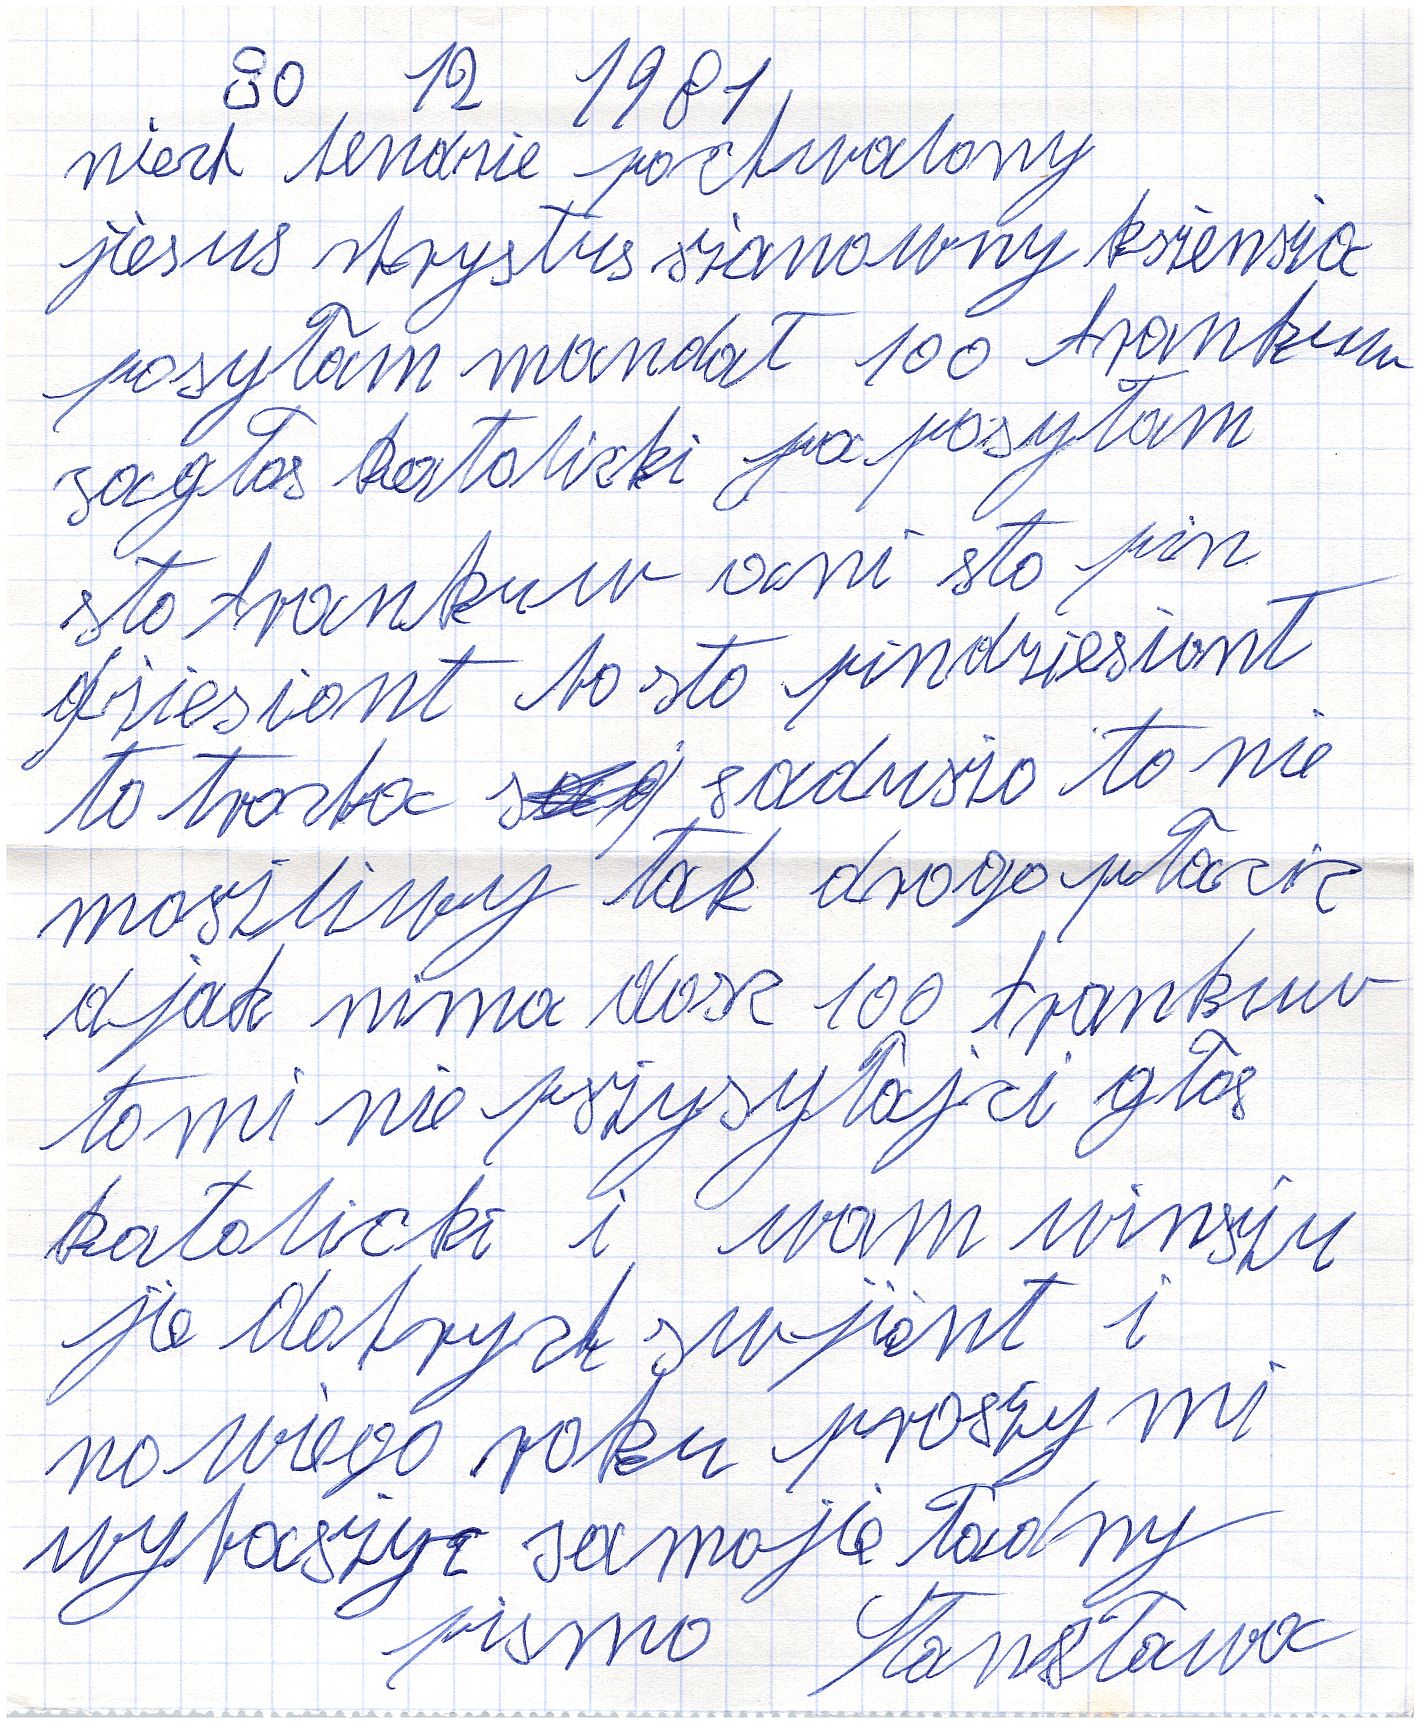 30 12 1981
niech bendzie pochwalony
jiesus chrystus szanowny ksżensża
posyłam mandat 100 frankuw
za głos katolicki ja posyłam
sto frankuw ani sto pin
dziesiont bo sto pindziesiont
to trocha sadusżo to nie
mosżliwy tak drogo płacic
a jak nima dosc 100 frankuw
to mi nie psżysyłajci głos
katolicki i wam winsżu
jie dobrych swjiont i
nowiego roku prosży mi
wybasżyc za mojie ładny
pismo Stanisława